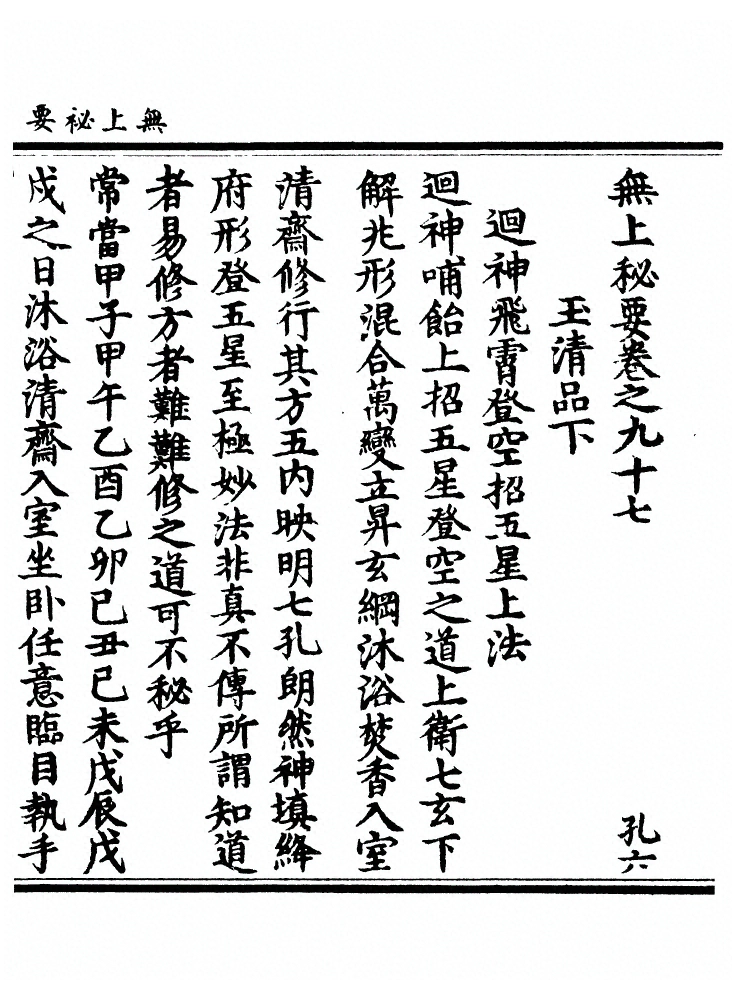 無上祕要
無上秘要卷之九十七 孔六
玉清品下
迴神飛霄登空招五星上法
迴神哺飴上招五星登空之道上衛七玄下
解兆形混合萬變立昇玄綱沐浴焚香入室
清齋修行其方五内映明七孔朗然神填絳
府形登五星至極妙法非真不傳所謂知道
者易修方者難難修之道可不秘乎
常當甲子甲午乙酉乙卯己丑己未戊辰戊
戍之日沐浴清齋入室坐卧任意臨目執手